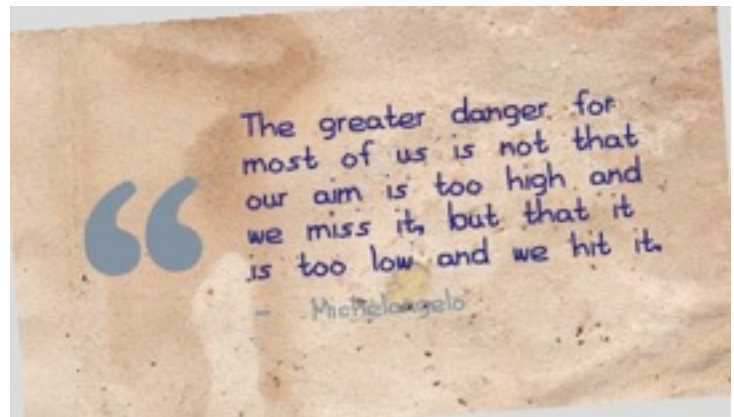 The greater danger for
most of us is not that
our aim is too high and
we miss it, but that it
is too low and we hit it.
- Michelangelo